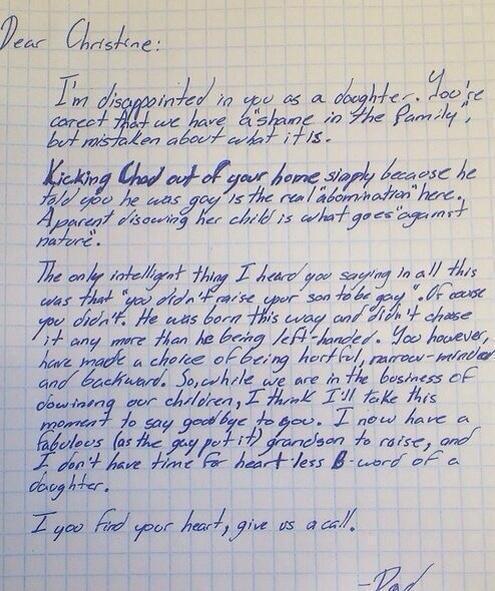 Dear Christine:
I'm disappointed in you as a daughter. You're
corect that we have a "shame in the family",
but mistaken about what it is.
Kicking Chad out of your home simply because he
told you he was gay is the real "abomination" here.
A parent disowing her child is what goes "against
nature".
The only intelligent thing I heard you saying in all this
was that "you didn't raise your son to be gay". Of course
you didn't. He was born this way and didn't choose
it any more than he being left-handed. You however,
have made a choice of being hurtful, narrow-minded
and backward. So, while we are in the business of
downing our children, I think I'll take this
moment to say goodbye to you. I now have a
fabulous (as the gay put it) grandson to raise, and
I don't have time for heart less B-word of a
daughter.
I you find your heart, give us a call.
-Dad